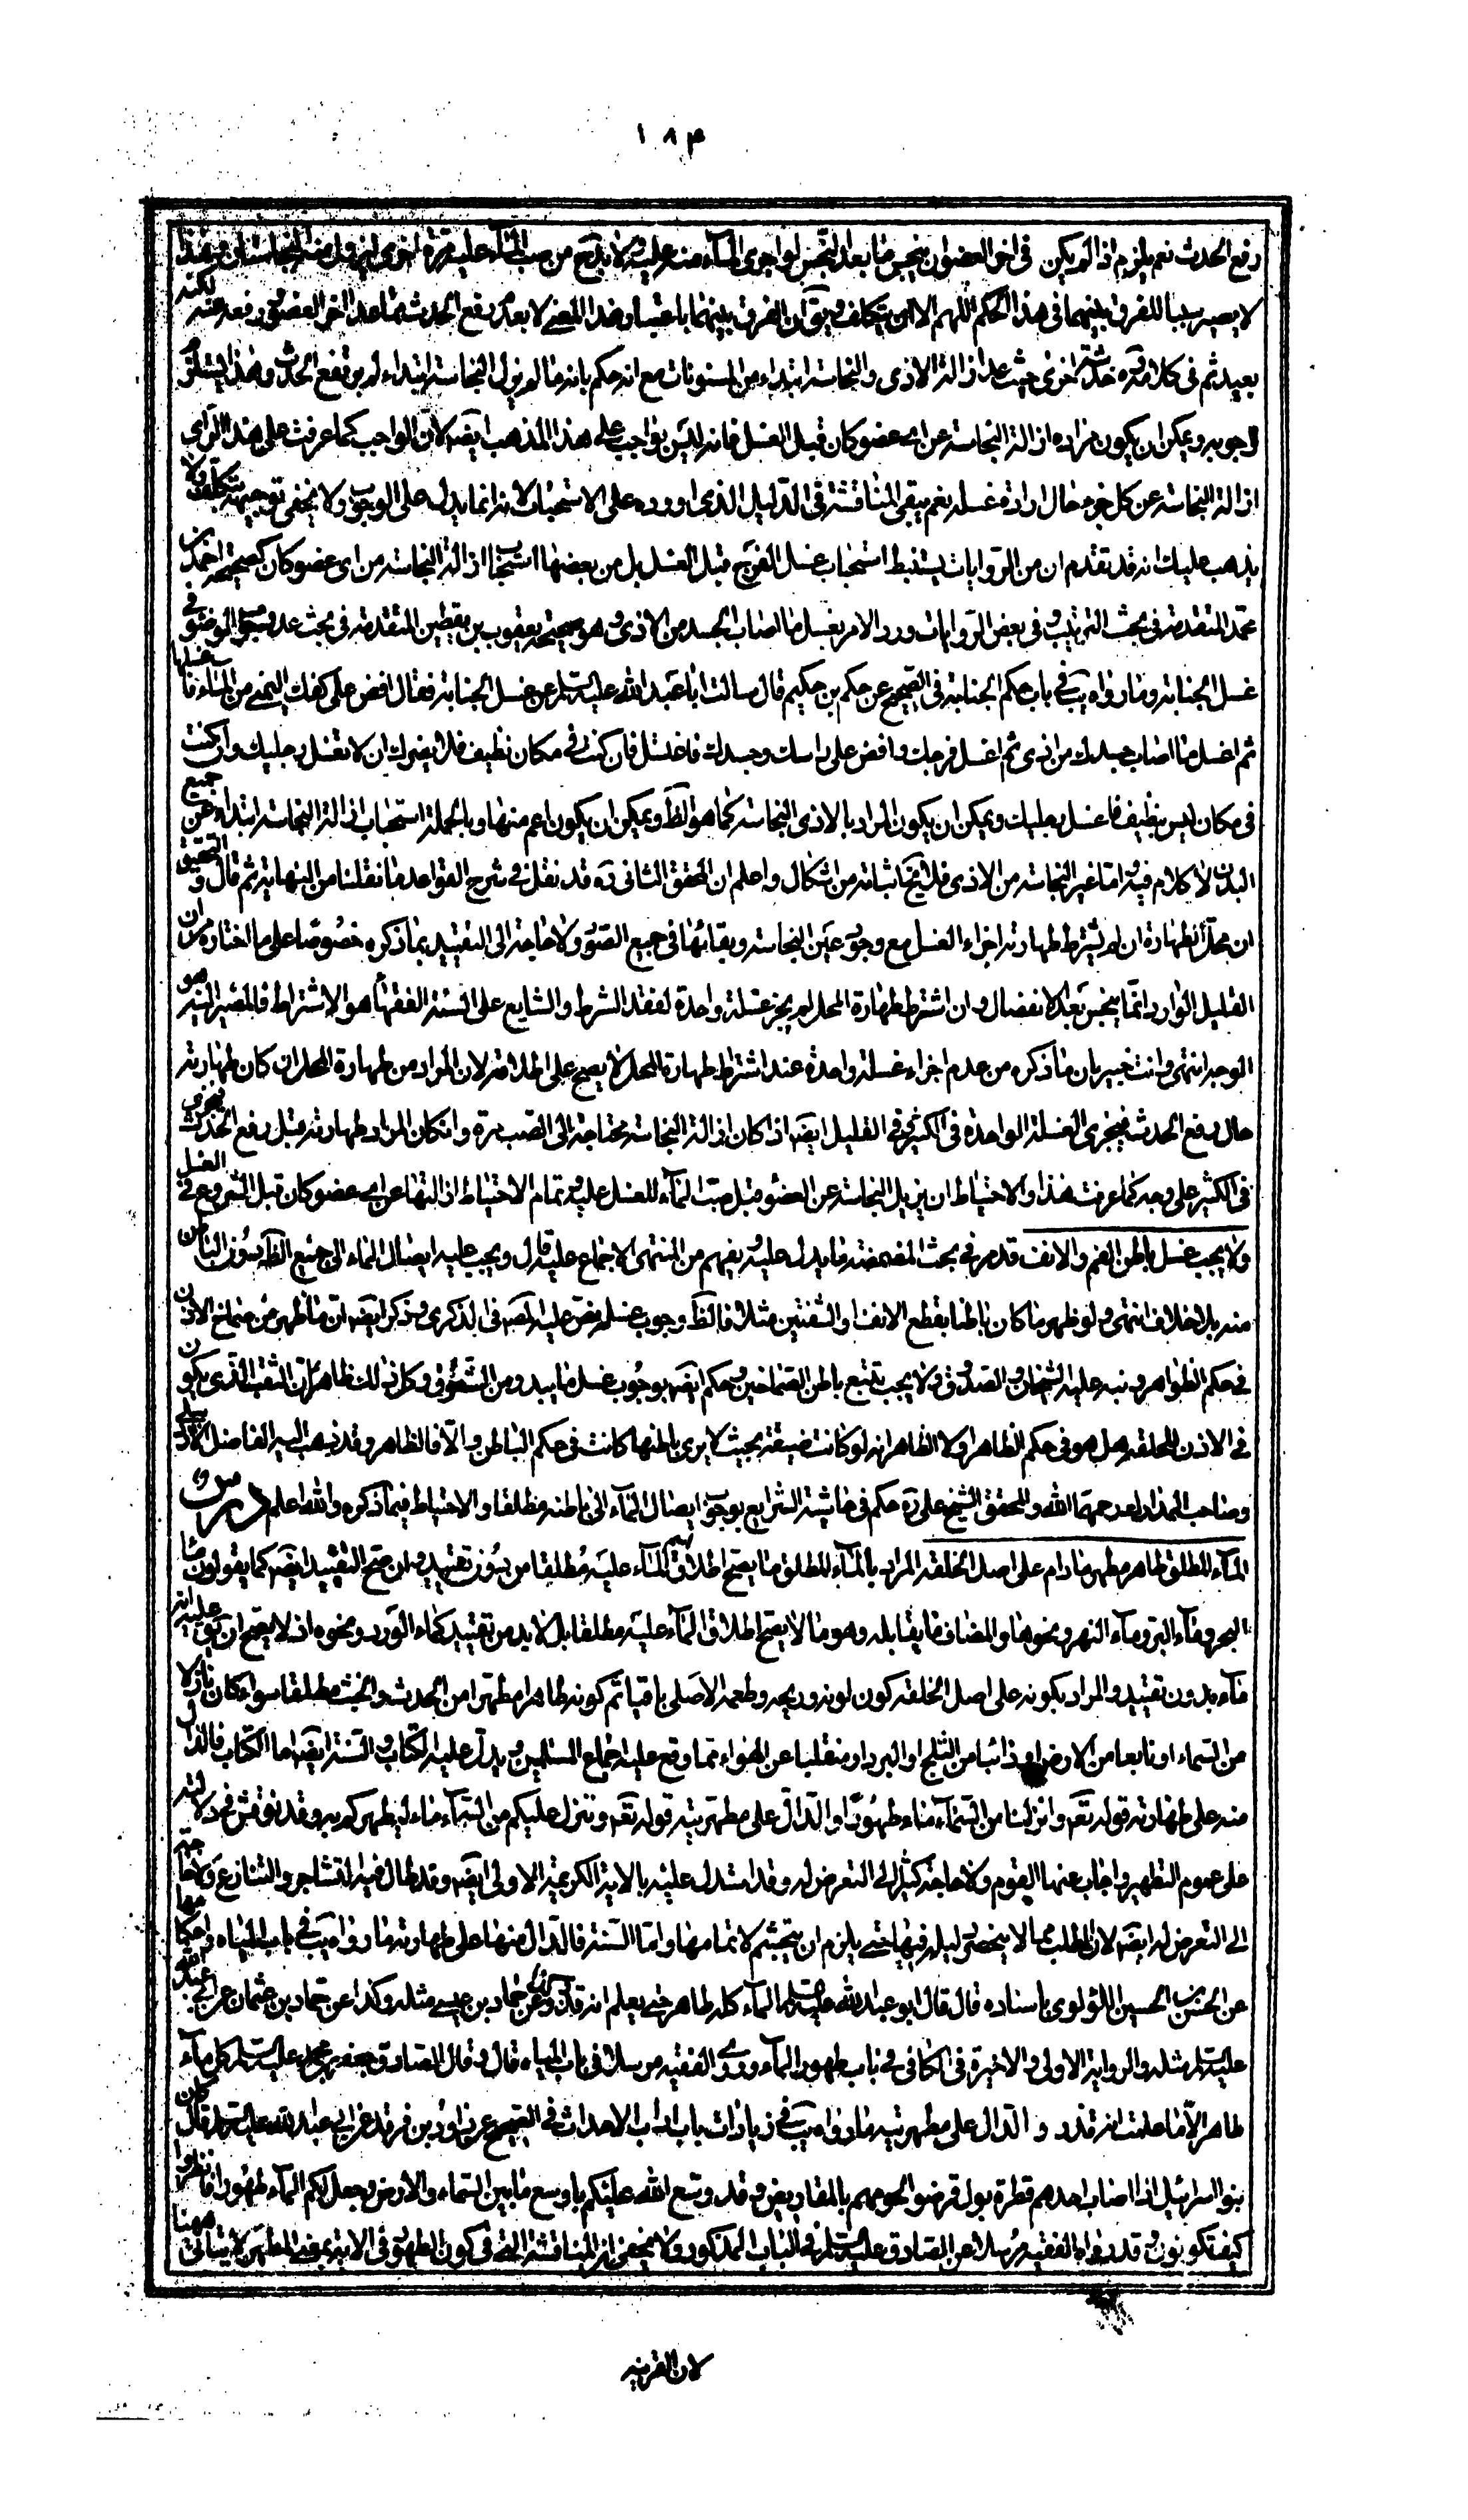 ١٨٣
رفع الحدث نعم يلزم اذا لم يكن في اخر العضو ان ينجس ما بعد النجس لو اجرى الماء منه عليه فلا بد ح من صب الماء عليه مرة اخرى
لا يصير سببا للفرق بينهما في هذا الحكم اللهم الا ان يتكلف ويق ان الفرق بينهما باعتبار هذا المعنى لا بعد رفع الحدث لكنه
بعيد ثم في كلامه ره خدشة اخرى حيث عد ازالة الاذى والنجاسة ابتداء من المسنونات مع انه حكم بانه ما لم يزل النجاسة ابتداء لم يرتفع الحدث وهذا يستلزم
وجوبه ويمكن ان يكون مراده ازالة النجاسة عن اى عضو كان قبل الغسل فانه ليس بواجب على هذا المذهب ايضه لان الواجب كما عرفت على هذا الراى
ازالة النجاسة عن كل جزء حال ارادة غسله نعم يبقى المناقشة في الدليل الذى اورده على الاستحباب لانه انما يدل على الوجوب ولا يخفى توجيهه بتكلف ولا
يذهب عليك انه قد تقدم ان من الروايات يستنبط استحباب غسل الفرج قبل الغسل بل من بعضها استحباب ازالة النجاسة من اى عضو كان كصحيحة احمد بن
محمد المتقدمة في بحث الترتيب وفي بعض الروايات ورد الامر بغسل ما اصاب الجسد من الاذى وهو صحيحة يعقوب بن يقطين المتقدمة في بحث عدم الوضوء في
غسل الجنابة وما رواه يب في باب حكم الجنابة في الصحيح عن حكم بن حكيم قال سالت ابا عبد الله عليه السلم عن غسل الجنابة فقال افض على كفك اليمنى من الماء فاغسلها
ثم اغسل ما اصاب جسدك من اذى ثم اغسل فرجك وافض على راسك وجسدك فاغتسل فان كنت في مكان نظيف فلا يضرك ان لا تغسل رجليك وان كنت
في مكان ليس بنظيف فاغسل رجليك ويمكن ان يكون المراد بالاذى النجاسة كما هو الظ ويمكن ان يكون اعم منها وبالجملة استحباب ازالة النجاسة ابتداء عن جميع
البدن لا كلام فيه اما غير النجاسة من الاذى فلا يخ اثباته من اشكال واعلم ان المحقق الثانى ره قد نقل في شرح القواعد ما نقلنا من النهاية ثم قال والتحقيق
ان محل الطهارة ان لم يشترط طهارته اجزاء الغسل مع وجود عين النجاسة وبقائها في جميع الصور ولا حاجة الى التقييد بما ذكره خصوصا على ما اختاره من ان
القليل الوارد انما ينجس بعد الانفصال وان اشترط طهارة المحل لم يجز غسلة واحدة لفقد الشرط والشايع على السنة الفقهاء هو الاشتراط فالمصير اليه هو
الوجه انتهى وانت خبير بان ما ذكره من عدم اجزاء غسلة واحدة عند اشتراط طهارة المحل لا يصح على اطلاقه لان المراد من طهارة المحل ان كان طهارته
حال رفع الحدث فيجزى الغسلة الواحدة في الكثير وفي القليل ايضه اذا كان ازالة النجاسة محتاجة الى الصب مرة وان كان المراد طهارته قبل رفع الحدث فيجزى
في الكثير على وجه كما عرفت هذا والاحتياط ان يزيل النجاسة عن العضو قبل صب الماء للغسل عليه وتمام الاحتياط ازالتها عن اى عضو كان قبل الشروع في الغسل
ولا يجب غسل باطن الفم والانف قد مر في بحث المضمضة ما يدل عليه ويفهم من المنتهى الاجماع عليه قال ويجب عليه ايصال الماء الى جميع الظاهر دون الباطن
منه بلا خلاف انتهى ولو ظهر ما كان باطنا بقطع الانف او الشفتين مثلا فالظ وجوب غسله نص عليه المصه في الذكرى وذكر ايضه ان ما ظهر من صماخ الاذن
في حكم الظواهر ونبه عليه الشيخان والصدوق ولا يجب تتبع باطن الصماخين وحكم ايضه بوجوب غسل ما يبدو من الشقوق وكل ذلك ظاهر لان الثقب الذى يكون
في الاذن للحلقه هل هو في حكم الظاهر او لا الظاهر انه لو كانت ضيقة بحيث لا يرى باطنها كانت في حكم الباطن والا فالظاهر وقد ذهب اليه الفاضل الاردبيلى
وصاحب المدارك رحمهما الله والمحقق الشيخ على ره حكم في حاشية الشرايع بوجوب ايصال الماء الى باطنه مطلقا والاحتياط فيما ذكره والله اعلم درس
الماء المطلق طاهر مطهر ما دام على اصل الخلقة المراد بالماء المطلق ما يصح اطلاق اسم الماء عليه مطلقا من دون تقييد وان صح التقييد ايضه كما يقولون ماء
البحر وماء البئر وماء النهر ونحوها والمضاف ما يقابله وهو ما لا يصح اطلاق الماء عليه مطلقا بل لا بد من تقييد كماء الورد ونحوه اذ لا يصح ان يق عليه انه
ماء بدون تقييد والمراد بكونه على اصل الخلقة كون لونه وريحه وطعمه الاصلى باقيا ثم كونه طاهرا مطهرا من الحدث والخبث مطلقا سواء كان نازلا
من السماء او نابعا من الارض او ذائبا من الثلج او البرد او منقلبا عن الهواء مما وقع عليه اجماع المسلمين ويدل عليه الكتاب والسنة ايضه اما الكتاب فالدال
منه على طهارته قوله تعه وانزلنا من السماء ماء طهورا والدال على مطهريته قوله تعه وننزل عليكم من السماء ماء ليطهركم به وقد نوقش في دلالته
على عموم التطهير واجاب عنها القوم ولا حاجة كثيرا الى التعرض له وقد استدل عليه بالاية الكريمة الاولى ايضه وقد طال فيه التشاجر والتنازع ولا حاجة
الى التعرض له ايضه لان المطلب مما لا ينحصر دليله فيها حتى يلزم ان يتجشم لاتمامها واما السنة فالدال منها على طهارته ما رواه يب في باب المياه واحكامها
عن الحسن بن الحسين اللؤلوى باسناده قال قال ابو عبد الله عليه السلم الماء كله طاهر حتى يعلم انه قذر وعن حماد بن عيسى مثله وكذا عن حماد بن عثمان عن ابى عبد الله
عليه السلم مثله والرواية الاولى والاخيرة في الكافى في باب طهور الماء وروى الفقيه مرسلا في باب المياه قال وقال الصادق جعفر بن محمد عليه السلم كل ماء
طاهر الا ما علمت انه قذر والدال على مطهريته ما رواه يب في زيادات باب اداب الاحداث في الصحيح عن داود بن فرقد عن ابى عبد الله عليه السلم قال كان
بنو اسرائيل اذا اصاب احدهم قطرة بول قرضوا لحومهم بالمقاريض وقد وسع الله عليكم باوسع ما بين السماء والارض وجعل لكم الماء طهورا فانظروا
كيف تكونون وقد رواه الفقيه مرسلا عن الصادق عليه السلم في الباب المذكور ولا يخفى ان المناقشة التى في كون الطهور في الاية بمعنى المطهر لا يتاتى ههنا
لان القرينه